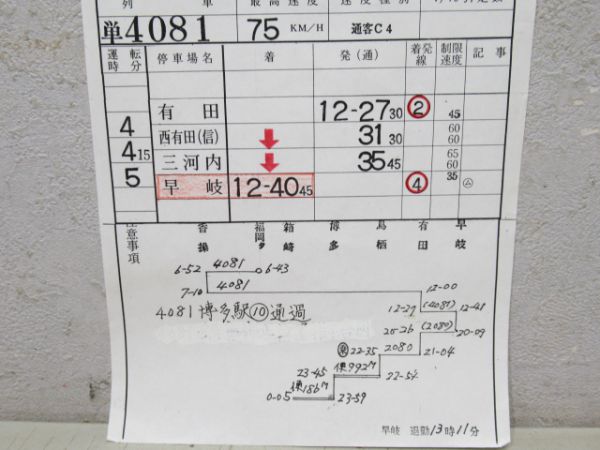 列 車 最高速度 速度種別
単4081 75 KM/H 通客C4
運転時分 停車場名 着 発(通) 着発線 制限速度 記事
有田 12-27 30 ② 45
4
西有田(信) 31 30 60 60
4 15
三河内 35 45 65 60
5
早岐 12-40 45 ④ 35
注意事項 香椎 福岡タ 箱崎 博多 鳥栖 有田 早岐
6-52 4081 6-43
7-10 4081 12-00
4081 博多駅⑩通過 12-27 (4081) 12-41
20-26 (2080) 20-09
22-35 2080 21-04
23-45 992M 22-54
186M
0-05 23-59
早岐 退勤13時11分